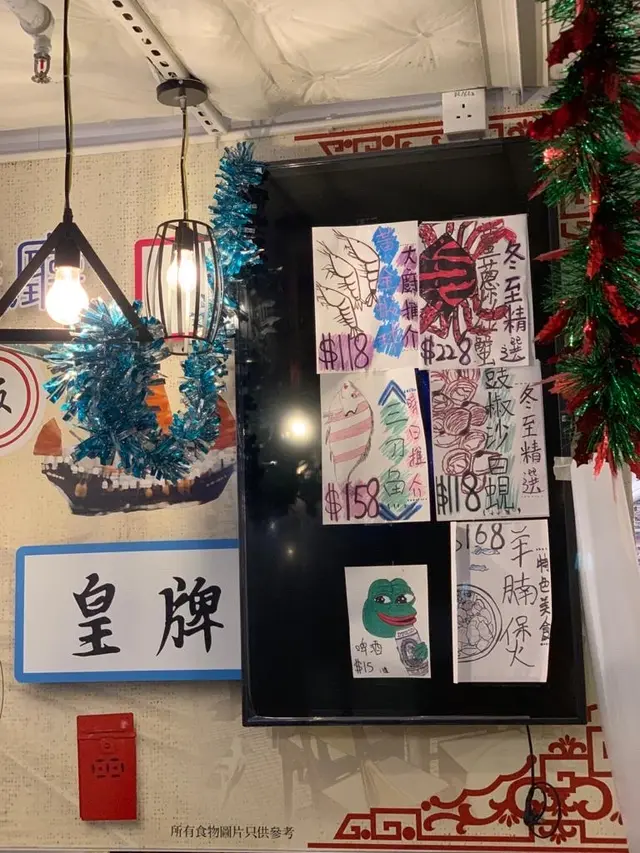 大廚推介
$118
冬至精選
$228
三刀魚
$158
冬至精選
豉椒沙白蜆
$118
啤酒
$15
特色美食
羊腩煲
$168
皇牌
所有食物圖片只供參考